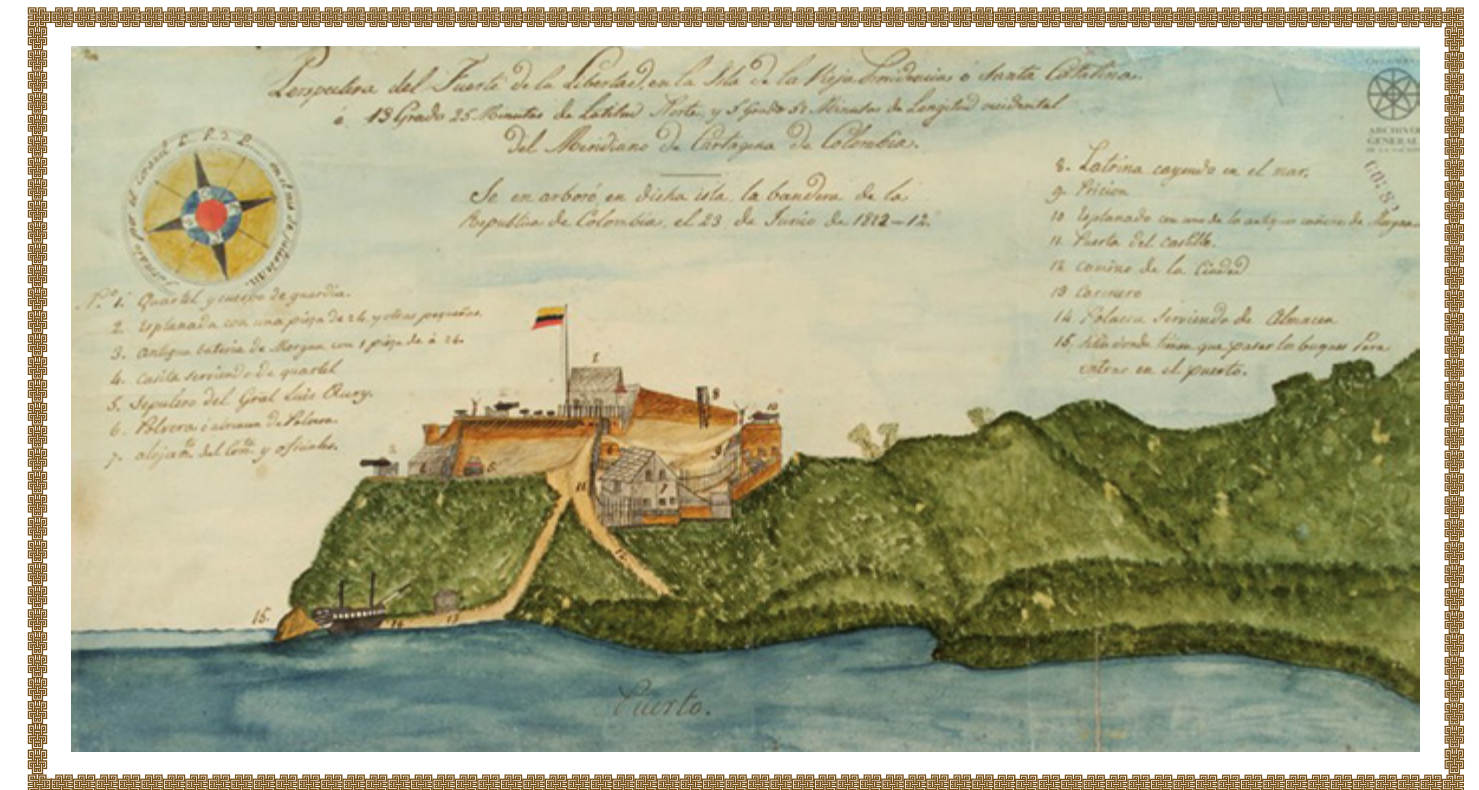 Perspectiva del Fuerte de la Libertad, en la Isla de la Vieja Providencia o Santa Catalina.
á 13 Grado 25 Minutos de Latitud Norte, y 5 Grado 51 Minutos de Longitud occidental
del Meridiano de Cartagena de Colombia.
Se en arboró en dicha isla, la bandera de la
Republica de Colombia, el 23 de Junio de
por el
N.º 1. Quartel y cuerpo de guardia.
2. Esplanada con una pieza de 24 y otras pequeñas.
3. antigua bateria de Morgan con 1 pieza de á 24.
4. casita serviendo de quartel
5. Sepulcro del Gral Luis Aury.
6. Polvora ó almacen de Polvora.
7. alojam.to del Com.te y oficiales.
8. Latrina cayendo en el mar.
9. Pricion
10 Esplanada con uno de los antiguos cañones de Morgan
11 Puerta del castillo.
12 camino de la Ciudad
13
14 Polacra serviendo de Almacen
15, sitio donde tienen que pasar los buques Para
entrar en el puerto.
ARCHIVO
GENERAL
DE LA NACION
1
2
5
7
8
9
10
11
12
13
14
15.
Puerto.